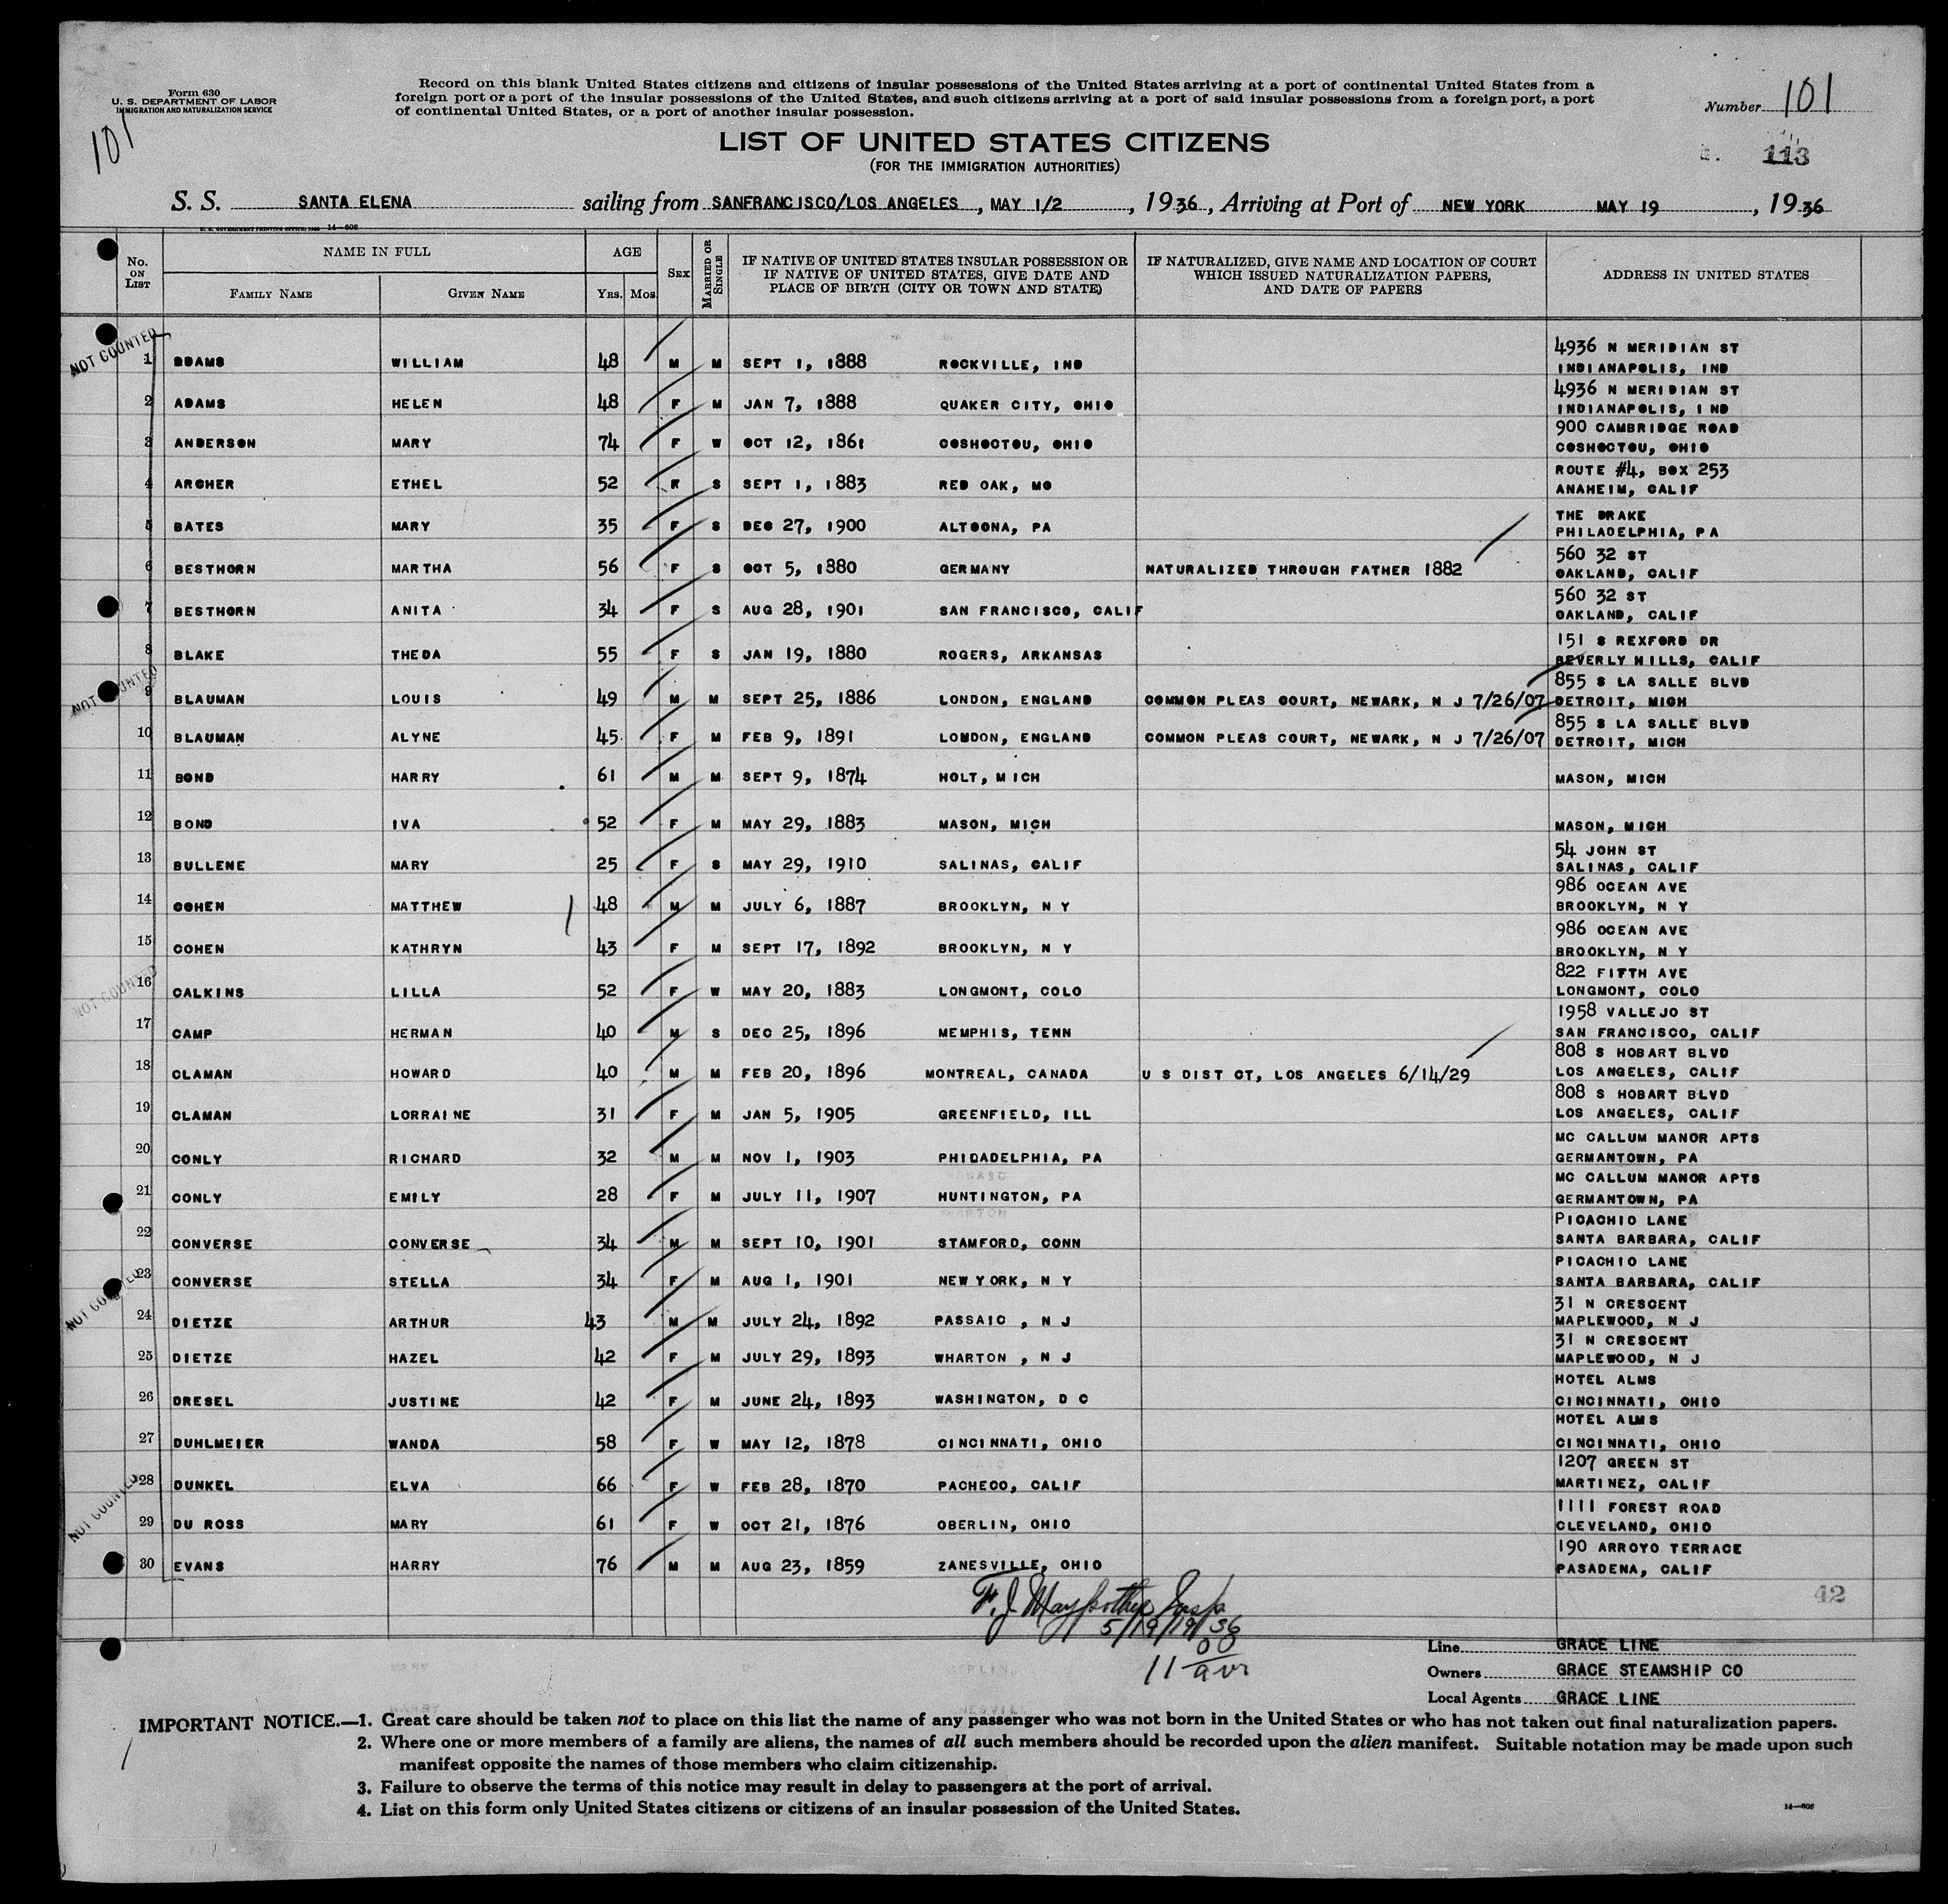 Form 630
U. S. DEPARTMENT OF LABOR
IMMIGRATION AND NATURALIZATION SERVICE
101
Record on this blank United States citizens and citizens of insular possessions of the United States arriving at a port of continental United States from a
foreign port or a port of the insular possessions of the United States, and such citizens arriving at a port of said insular possessions from a foreign port, a port
of continental United States, or a port of another insular possession.
Number 101
113
LIST OF UNITED STATES CITIZENS
(FOR THE IMMIGRATION AUTHORITIES)
S. S. SANTA ELENA sailing from SANFRANCISCO/LOS ANGELES, MAY 1/2, 1936, Arriving at Port of NEW YORK MAY 19, 1936
14—608
No. ON LIST NAME IN FULL AGE SEX MARRIED OR SINGLE IF NATIVE OF UNITED STATES INSULAR POSSESSION OR IF NATIVE OF UNITED STATES, GIVE DATE AND PLACE OF BIRTH (CITY OR TOWN AND STATE) IF NATURALIZED, GIVE NAME AND LOCATION OF COURT WHICH ISSUED NATURALIZATION PAPERS, AND DATE OF PAPERS ADDRESS IN UNITED STATES
FAMILY NAME GIVEN NAME YRS. MOS.
NOT COUNTED
4936 N MERIDIAN ST
1 ADAMS WILLIAM 48 M M SEPT 1, 1888 ROCKVILLE, IND INDIANAPOLIS, IND
4936 N MERIDIAN ST
2 ADAMS HELEN 48 F M JAN 7, 1888 QUAKER CITY, OHIO INDIANAPOLIS, IND
900 CAMBRIDGE ROAD
3 ANDERSON MARY 74 F W OCT 12, 1861 COSHOCTOU, OHIO COSHOCTOU, OHIO
ROUTE #4, BOX 253
4 ARCHER ETHEL 52 F S SEPT 1, 1883 RED OAK, MO ANAHEIM, CALIF
THE DRAKE
5 BATES MARY 35 F S DEC 27, 1900 ALTOONA, PA PHILADELPHIA, PA
560 32 ST
6 BESTHORN MARTHA 56 F S OCT 5, 1880 GERMANY NATURALIZED THROUGH FATHER 1882 OAKLAND, CALIF
560 32 ST
7 BESTHORN ANITA 34 F S AUG 28, 1901 SAN FRANCISCO, CALIF OAKLAND, CALIF
151 S REXFORD DR
8 BLAKE THEDA 55 F S JAN 19, 1880 ROGERS, ARKANSAS BEVERLY HILLS, CALIF
NOT COUNTED
855 S LA SALLE BLVD
9 BLAUMAN LOUIS 49 M M SEPT 25, 1886 LONDON, ENGLAND COMMON PLEAS COURT, NEWARK, N J 7/26/07 DETROIT, MICH
855 S LA SALLE BLVD
10 BLAUMAN ALYNE 45 F M FEB 9, 1891 LONDON, ENGLAND COMMON PLEAS COURT, NEWARK, N J 7/26/07 DETROIT, MICH
11 BOND HARRY 61 M M SEPT 9, 1874 HOLT, MICH MASON, MICH
12 BOND IVA 52 F M MAY 29, 1883 MASON, MICH MASON, MICH
54 JOHN ST
13 BULLENE MARY 25 F S MAY 29, 1910 SALINAS, CALIF SALINAS, CALIF
986 OCEAN AVE
14 COHEN MATTHEW 48 M M JULY 6, 1887 BROOKLYN, N Y BROOKLYN, N Y
986 OCEAN AVE
15 COHEN KATHRYN 43 F M SEPT 17, 1892 BROOKLYN, N Y BROOKLYN, N Y
NOT COUNTED
822 FIFTH AVE
16 CALKINS LILLA 52 F W MAY 20, 1883 LONGMONT, COLO LONGMONT, COLO
1958 VALLEJO ST
17 CAMP HERMAN 40 M S DEC 25, 1896 MEMPHIS, TENN SAN FRANCISCO, CALIF
808 S HOBART BLVD
18 CLAMAN HOWARD 40 M M FEB 20, 1896 MONTREAL, CANADA U S DIST CT, LOS ANGELES 6/14/29 LOS ANGELES, CALIF
808 S HOBART BLVD
19 CLAMAN LORRAINE 31 F M JAN 5, 1905 GREENFIELD, ILL LOS ANGELES, CALIF
MC CALLUM MANOR APTS
20 CONLY RICHARD 32 M M NOV 1, 1903 PHIDADELPHIA, PA GERMANTOWN, PA
MC CALLUM MANOR APTS
21 CONLY EMILY 28 F M JULY 11, 1907 HUNTINGTON, PA GERMANTOWN, PA
PICACHIO LANE
22 CONVERSE CONVERSE 34 M M SEPT 10, 1901 STAMFORD, CONN SANTA BARBARA, CALIF
PICACHIO LANE
23 CONVERSE STELLA 34 F M AUG 1, 1901 NEW YORK, N Y SANTA BARBARA, CALIF
NOT COUNTED
31 N CRESCENT
24 DIETZE ARTHUR 43 M M JULY 24, 1892 PASSAIC , N J MAPLEWOOD, N J
31 N CRESCENT
25 DIETZE HAZEL 42 F M JULY 29, 1893 WHARTON , N J MAPLEWOOD, N J
HOTEL ALMS
26 DRESEL JUSTINE 42 F M JUNE 24, 1893 WASHINGTON, D C CINCINNATI, OHIO
HOTEL ALMS
27 DUHLMEIER WANDA 58 F W MAY 12, 1878 CINCINNATI, OHIO CINCINNATI, OHIO
1207 GREEN ST
28 DUNKEL ELVA 66 F W FEB 28, 1870 PACHECO, CALIF MARTINEZ, CALIF
NOT COUNTED
1111 FOREST ROAD
29 DU ROSS MARY 61 F W OCT 21, 1876 OBERLIN, OHIO CLEVELAND, OHIO
190 ARROYO TERRACE
30 EVANS HARRY 76 M M AUG 23, 1859 ZANESVILLE, OHIO PASADENA, CALIF
42
F. J. Insp
5/19/1936
11
Line GRACE LINE
Owners GRACE STEAMSHIP CO
Local Agents GRACE LINE
IMPORTANT NOTICE.—1. Great care should be taken not to place on this list the name of any passenger who was not born in the United States or who has not taken out final naturalization papers.
2. Where one or more members of a family are aliens, the names of all such members should be recorded upon the alien manifest. Suitable notation may be made upon such
manifest opposite the names of those members who claim citizenship.
3. Failure to observe the terms of this notice may result in delay to passengers at the port of arrival.
4. List on this form only United States citizens or citizens of an insular possession of the United States.
14—608